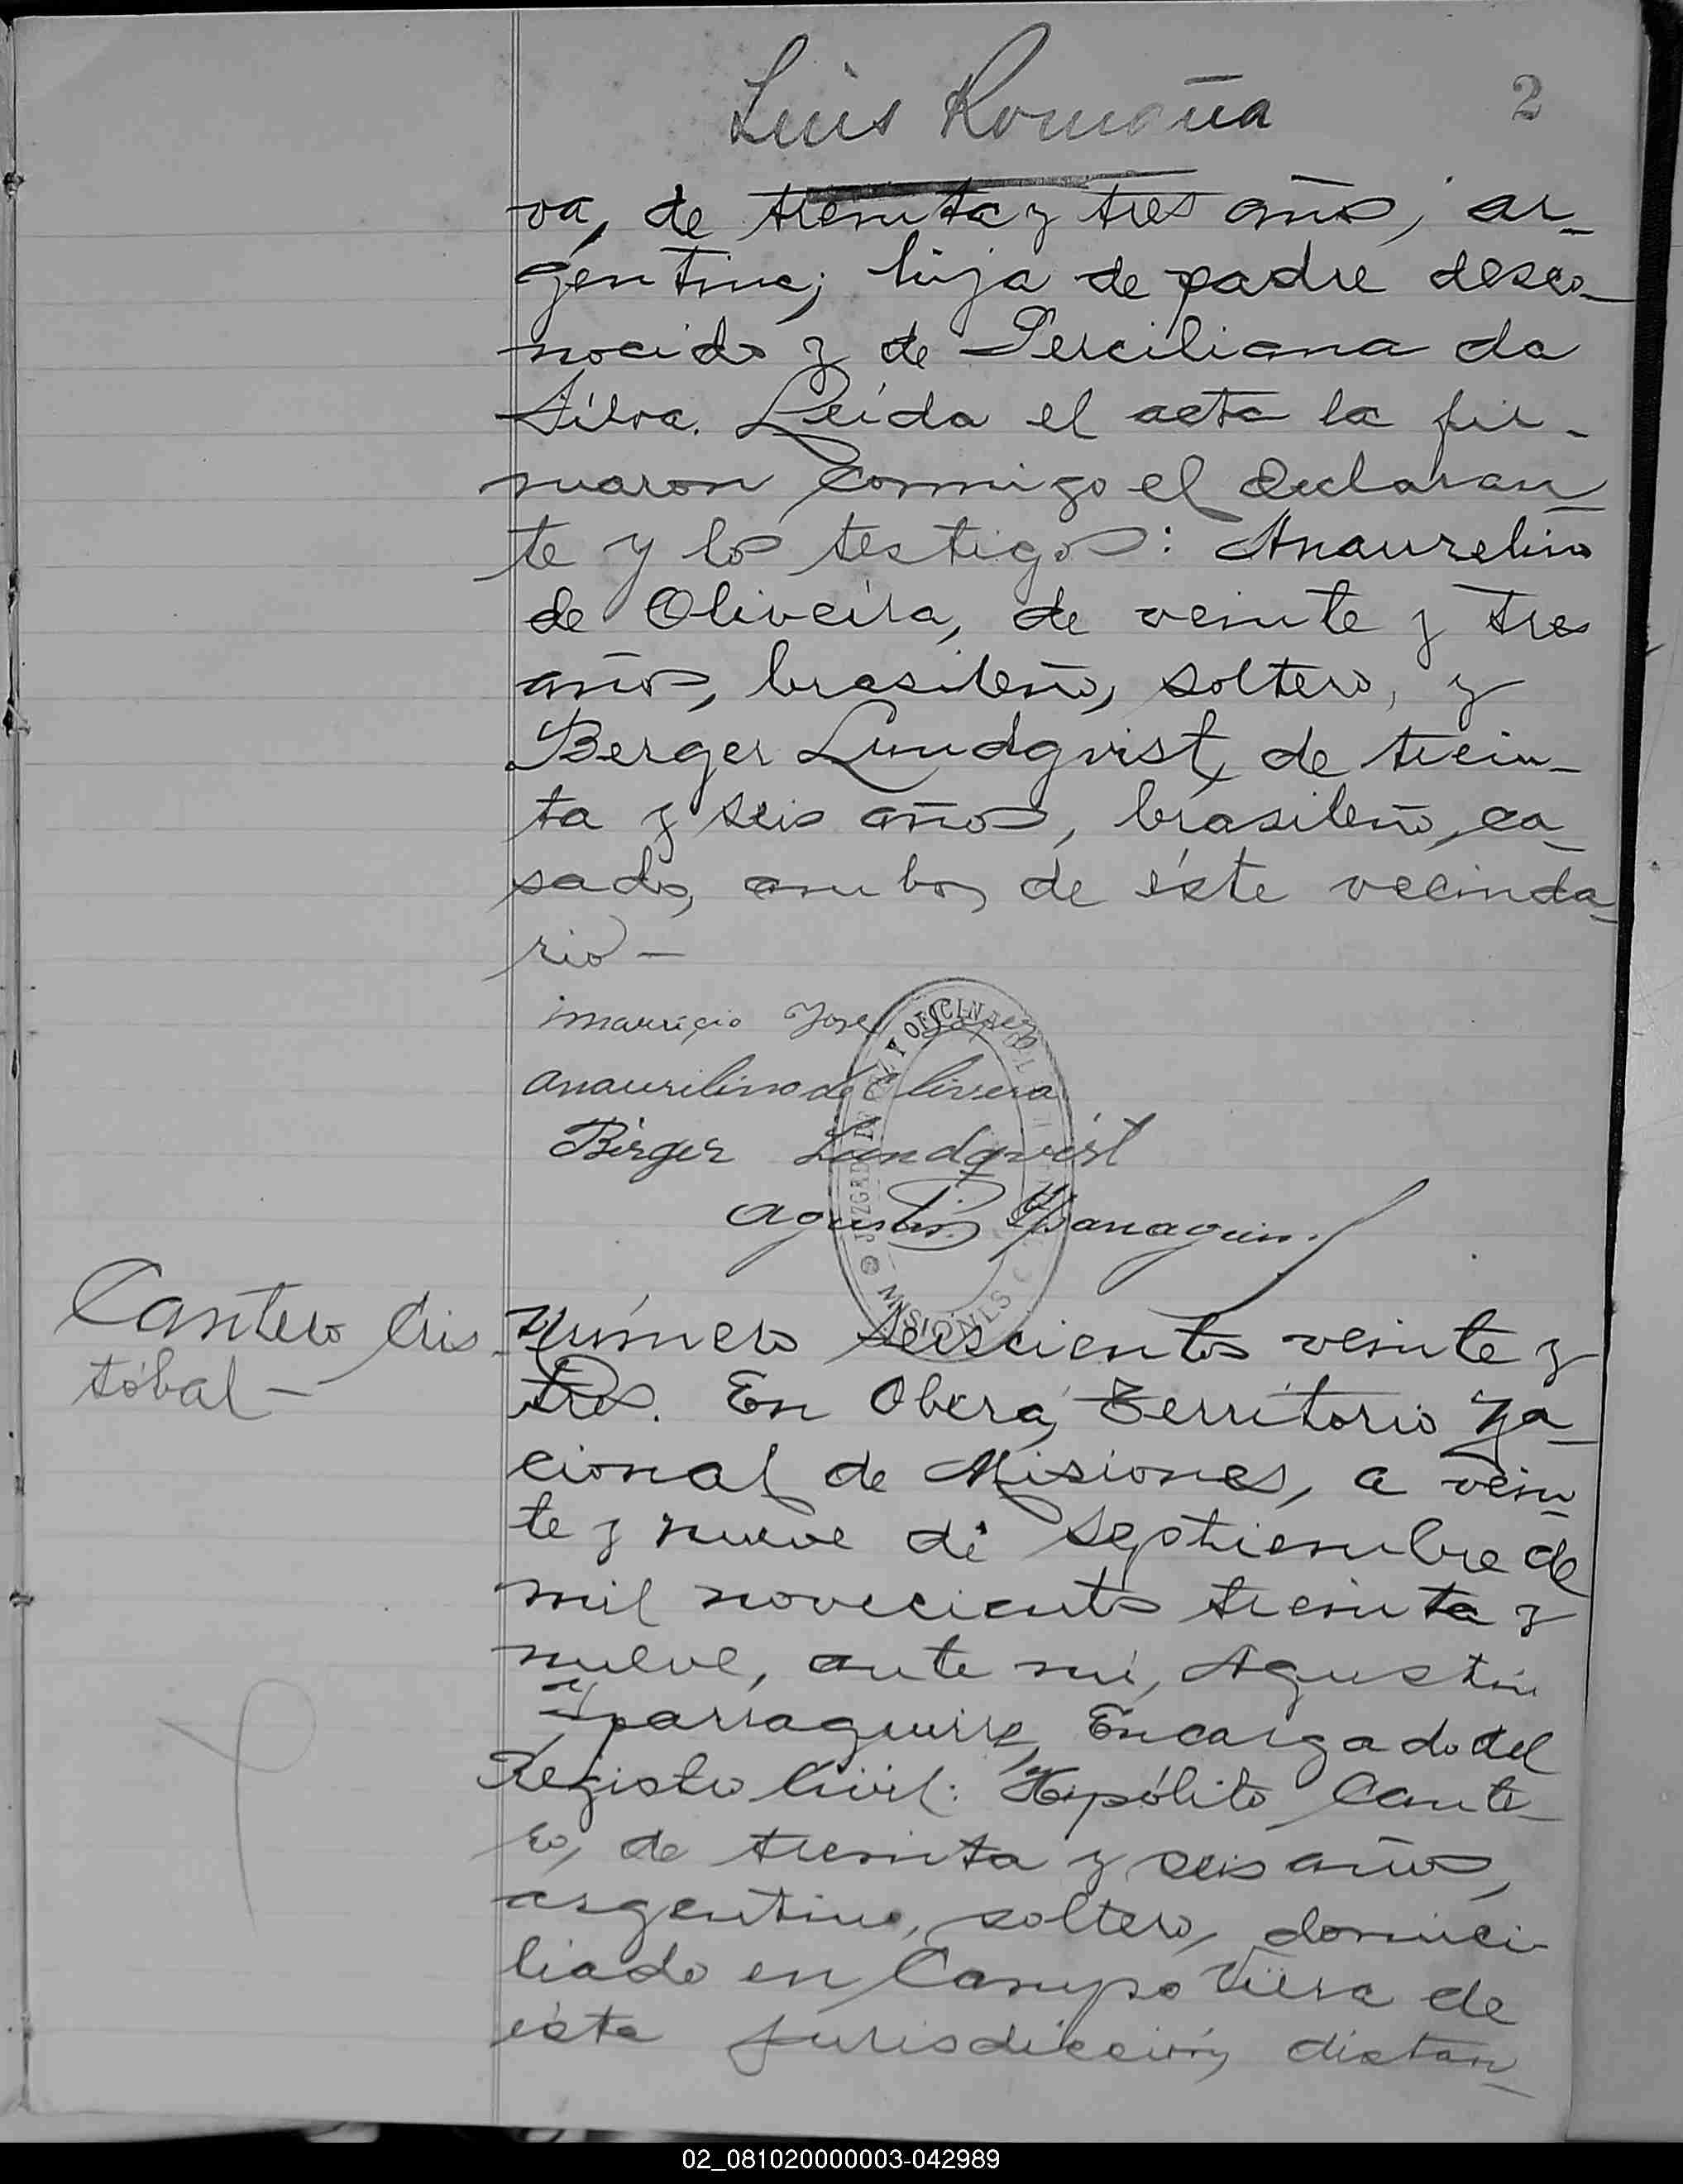 Luis Romaña
2
va, de treinta y tres años, ar-
gentina; hija de padre desco-
nocido y de Perciliana da
Silva. Leída el acta la fir-
maron conmigo el declaran-
te y los testigos: Anaurelino
de Oliveira, de veinte y tres
años, brasileño, soltero, y
Berger Lundqvist, de trein-
ta y seis años, brasileño, ca-
sado, ambos de éste vecinda-
rio -
mauricio Jose
anaurilino de Olivera
Birger Lundqvist
JUZGADO DE PAZ Y OFICINA DEL
MISIONES
Agustin Yparraguirre
Cantero Cris-
tóbal -
Número seiscientos veinte y
tres. En Oberá, Territorio Na-
cional de Misiones, a vein-
te y nueve de septiembre de
mil novecientos treinta y
nueve, ante mí, Agustín
Yparraguirre, Encargado del
Registro Civil: Hipólito Cante-
ro, de treinta y seis años,
argentino, soltero, domici-
liado en Campo Viera de
ésta jurisdicción, distan-
02_081020000003-042989